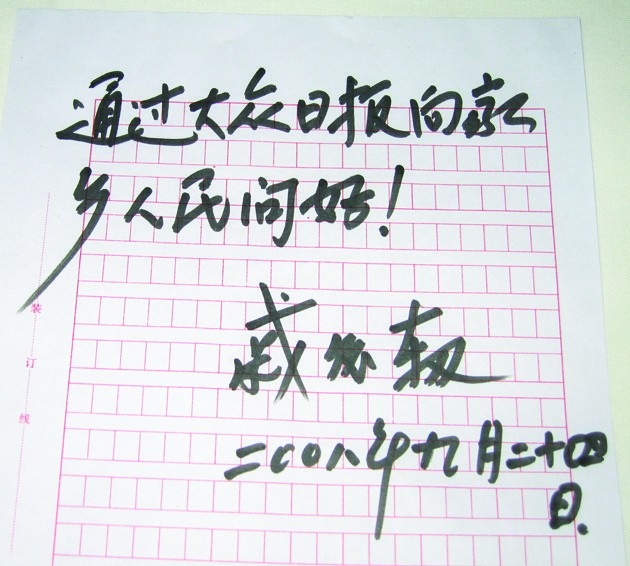 通过大众日报向家
乡人民问好！
戚发轫
二〇〇八年九月二十四
日.
装订线